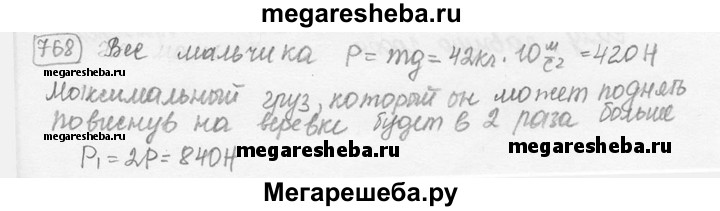 megaresheba.ru
768 Вес мальчика P = mg = 42кг · 10 м/с2 = 420Н
megaresheba.ru megaresheba.ru megaresheba.ru
Максимальный груз, который он может поднять
повиснув на веревке будет в 2 раза больше
P₁ = 2P = 840Н
megaresheba.ru megaresheba.ru
Мегарешеба.ру